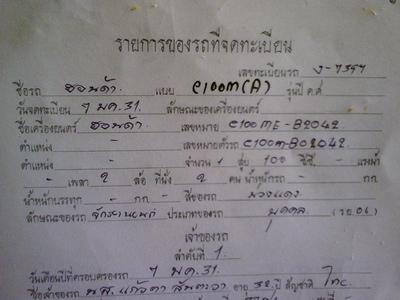 รายการของรถที่จดทะเบียน
เลขทะเบียนรถ ง-7357
ชื่อรถ ฮอนด้า แบบ C100M(A) รุ่นปี ค.ศ
วันจดทะเบียน 7 มค.31. ลักษณะของเครื่องยนต์
ชื่อเครื่องยนต์ ฮอนด้า. เลขหมาย C100ME-B2042
ตำแหน่ง - เลขหมายตัวรถ C100M-B02042
ตำแหน่ง - จำนวน 1 สูบ 100 ซีซี. - แรงม้า
- เพลา 2 ล้อ ที่นั่ง 2 คน น้ำหนักรถ - กก
น้ำหนักบรรทุก - กก สีของรถ ม่วงแดง
ลักษณะของรถ จักรยานยนต์ ประเภทของรถ บุคคล (รย.
เจ้าของรถ
ลำดับที่ 1.
วันเดือนปีที่ครอบครองรถ 7 มค.31.
ชื่อเจ้าของรถ นส. อายุ 32 ปี สัญชาติ ไทย